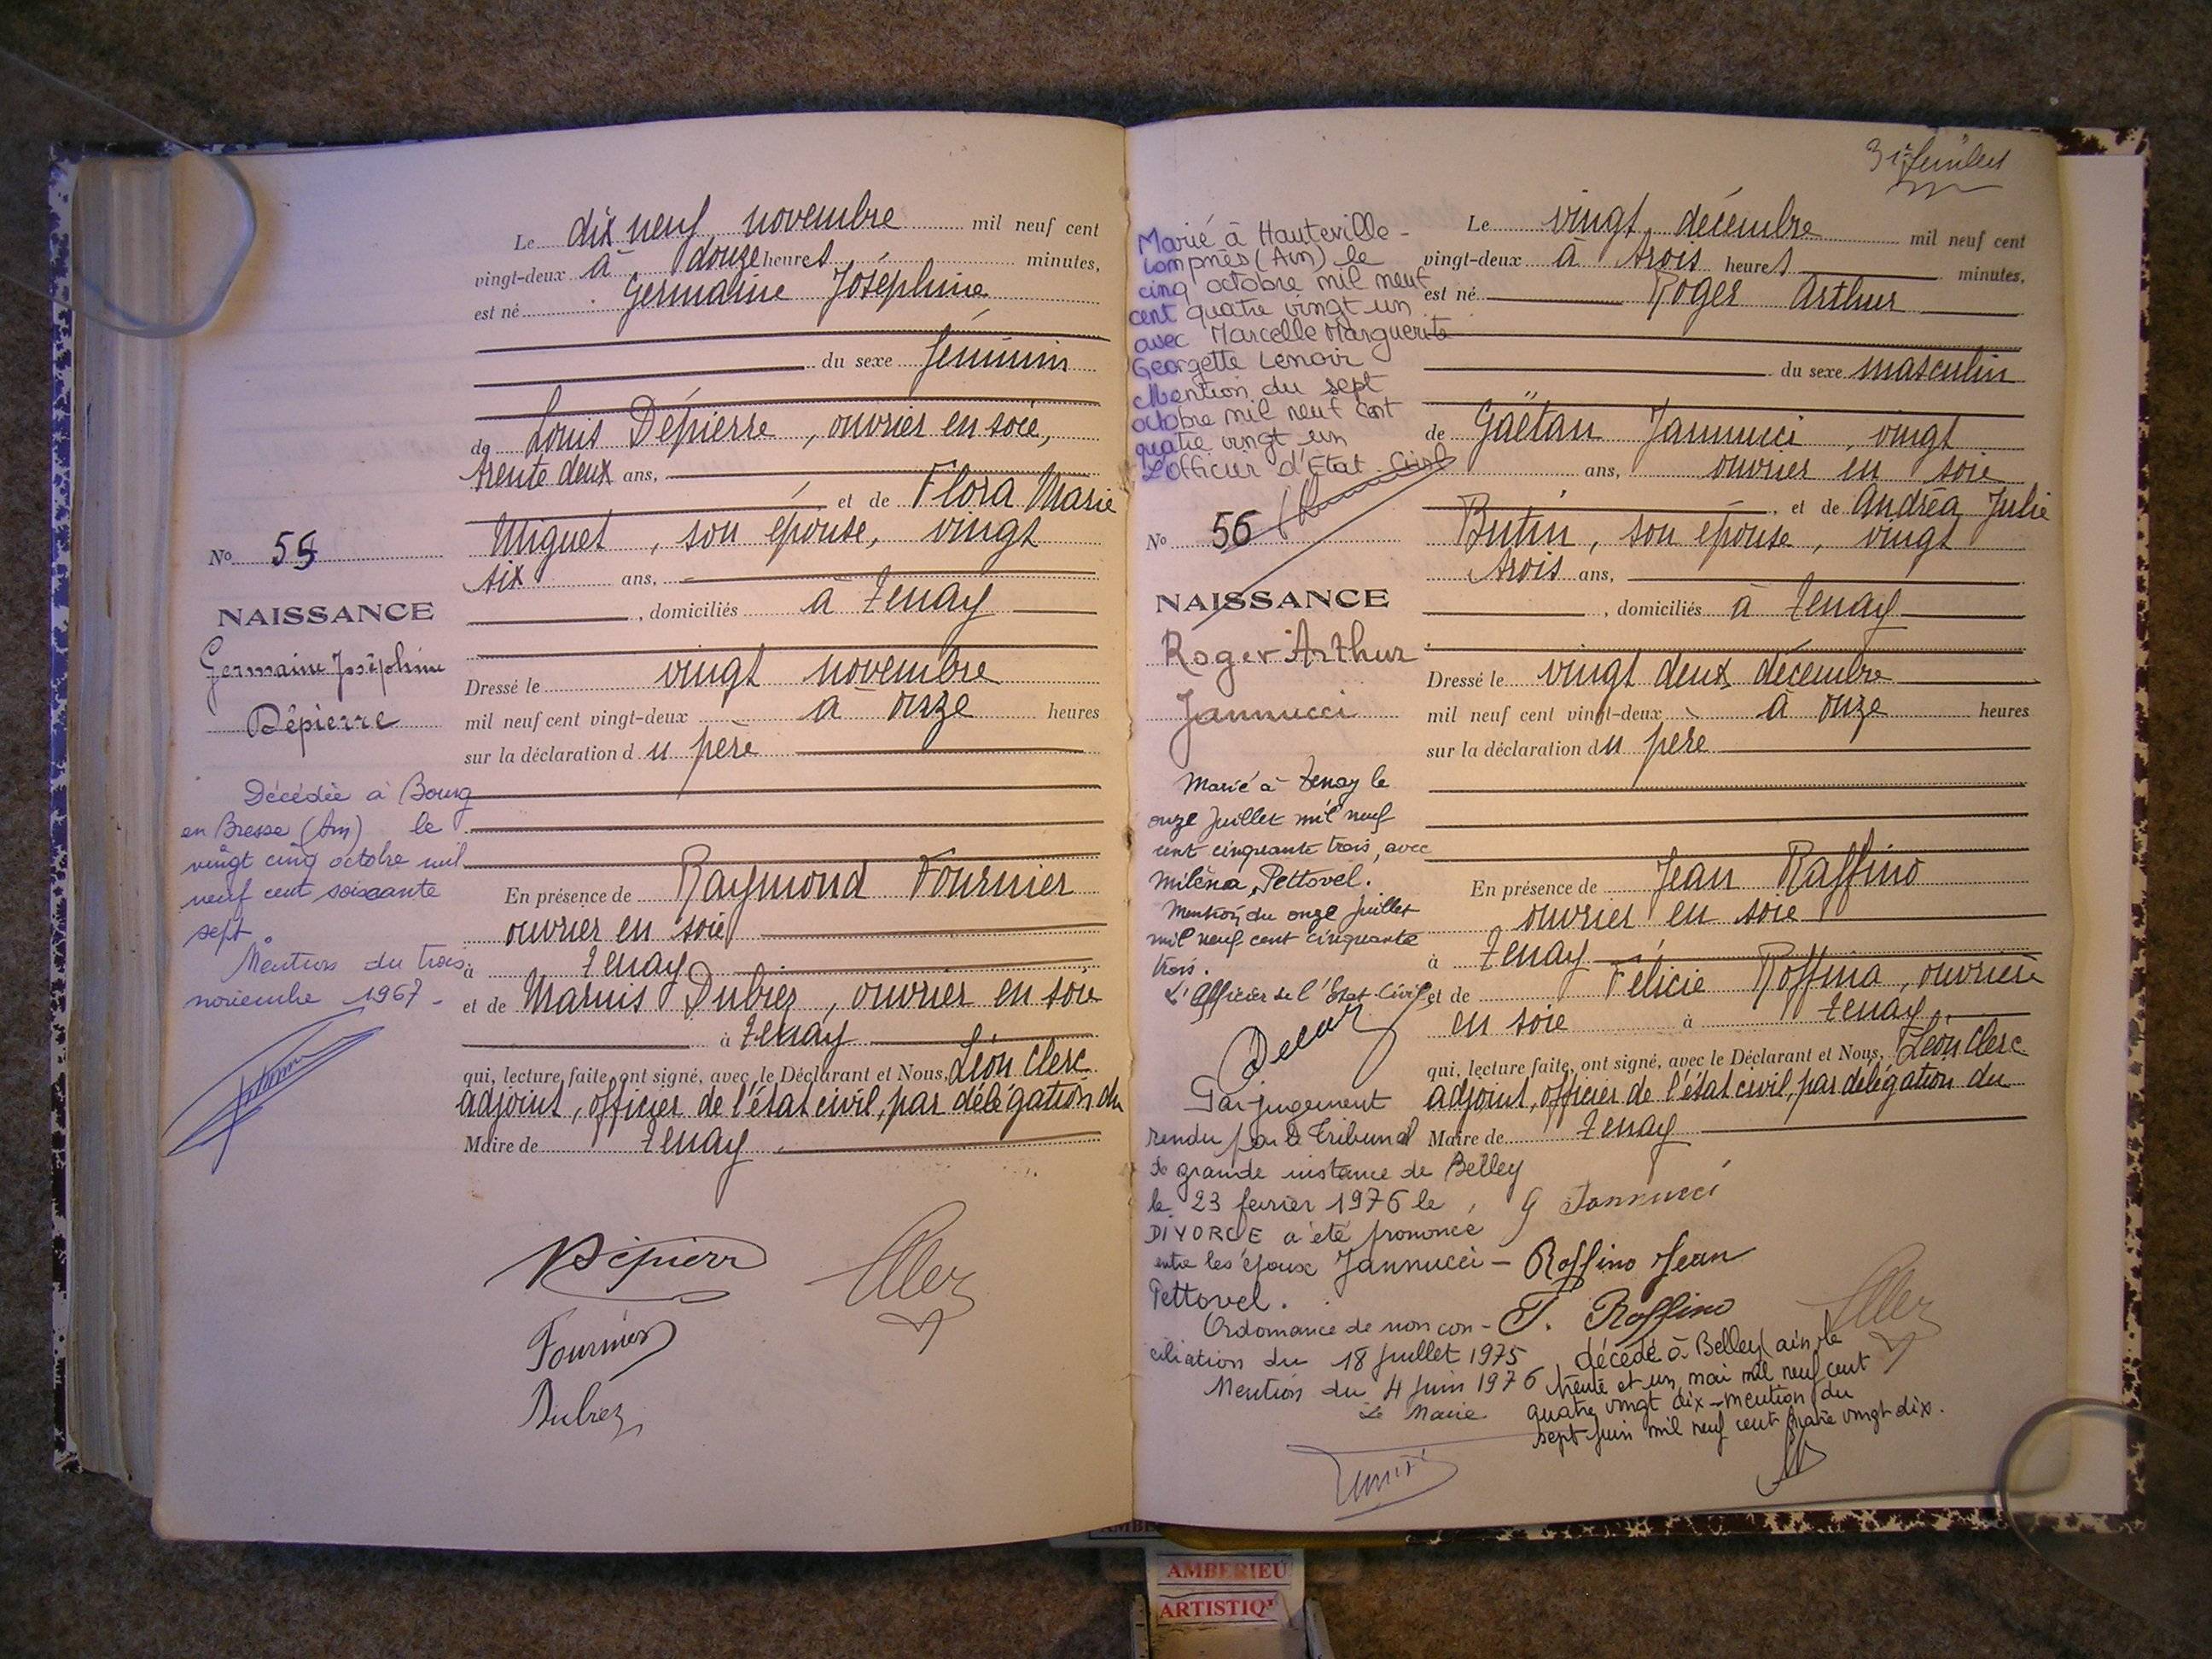 Le dix neuf novembre mil neuf cent
vingt-deux à douze heures minutes,
est né Germaine Joséphine
du sexe féminin
de Louis Dépierre, ouvrier en soie,
trente deux ans,
et de Flora Marie
Miguet, son épouse, vingt
six ans,
, domiciliés à Tenay
Dressé le vingt novembre
mil neuf cent vingt-deux à onze heures
sur la déclaration du père
En présence de Raymond Fournier
ouvrier en soie
à Tenay
et de Marius Dubiez, ouvrier en soie
à Tenay
qui, lecture faite, ont signé, avec le Déclarant et Nous, Léon Clerc
adjoint, officier de l'état civil, par délégation du
Maire de Tenay
Dépierre
Fournier
No 55
NAISSANCE
Germaine Joséphine
Dépierre
Décédée à Bourg
en Bresse (Ain) le
vingt cinq octobre mil
neuf cent soixante
sept
Mention du trois
novembre 1967 -
Marié à Hauteville-
Lompnès (Ain) le
cinq octobre mil neuf
cent quatre vingt un
avec Marcelle Marguerite
Georgette Lenoir
Mention du sept
octobre mil neuf cent
quatre vingt un
L'officier d'Etat Civil
No 56
NAISSANCE
Roger Arthur
Jannucci
Marié à Tenay le
onze Juillet mil neuf
cent cinquante trois, avec
Miléna, Pettovel.
Mention du onze Juillet
mil neuf cent cinquante
trois.
L'Officier de l'Etat-Civil,
Par jugement
rendu par le Tribunal
de grande instance de Belley
le 23 février 1976 le
DIVORCE a été prononcé
entre les époux Jannucci -
Pettovel.
Ordonnance de non con-
ciliation du 18 Juillet 1975
Mention du 4 Juin 1976
Le Maire
Le vingt décembre mil neuf cent
vingt-deux à trois heures minutes,
est né Roger Arthur
du sexe masculin
de Gaëtan Jannucci, vingt
ans, ouvrier en soie
, et de Andréa Julie
Butin, son épouse, vingt
trois ans,
, domiciliés à Tenay
Dressé le vingt deux décembre
mil neuf cent vingt-deux à onze heures
sur la déclaration du père
En présence de Jean Raffino
ouvrier en soie
à Tenay
et de Félicie Roffina, ouvrière
en soie à Tenay
qui, lecture faite, ont signé, avec le Déclarant et Nous, Léon Clerc
adjoint, officier de l'état civil, par délégation du
Maire de Tenay
G Jannucci
Roffino Jean
Roffino
décédé à Belley (ain) le
trente et un mai mil neuf cent
quatre vingt dix - mention du
sept juin mil neuf cent quatre vingt dix.
AMBERIEU
ARTISTIQ